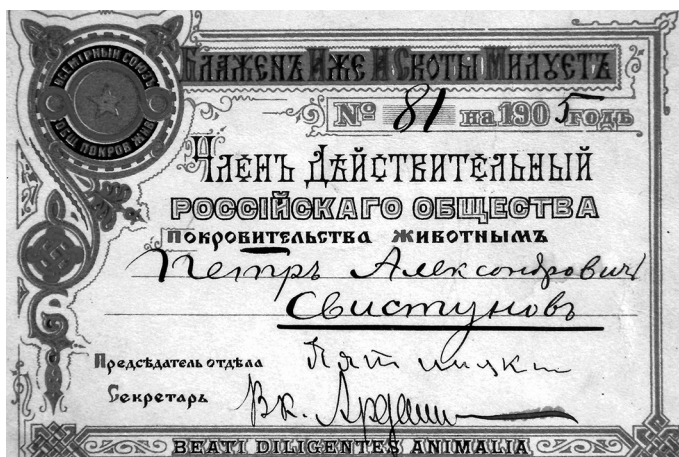 ВСЕМІРНЫЙ СОЮЗЪ
ОБЩ ПОКРОВ ЖИВ
БЛАЖЕНЪ ИЖЕ И СКОТЫ МИЛУЕТЪ
№ 81 на 1905 годъ
ЧЛЕНЪ ДѢЙСТВИТЕЛЬНЫЙ
РОССІЙСКАГО ОБЩЕСТВА
ПОКРОВИТЕЛЬСТВА ЖИВОТНЫМЪ
Петръ Александровичъ
Свистуновъ
Предсѣдатель отдѣла
Секретарь
BEATI DILIGENTES ANIMALIA